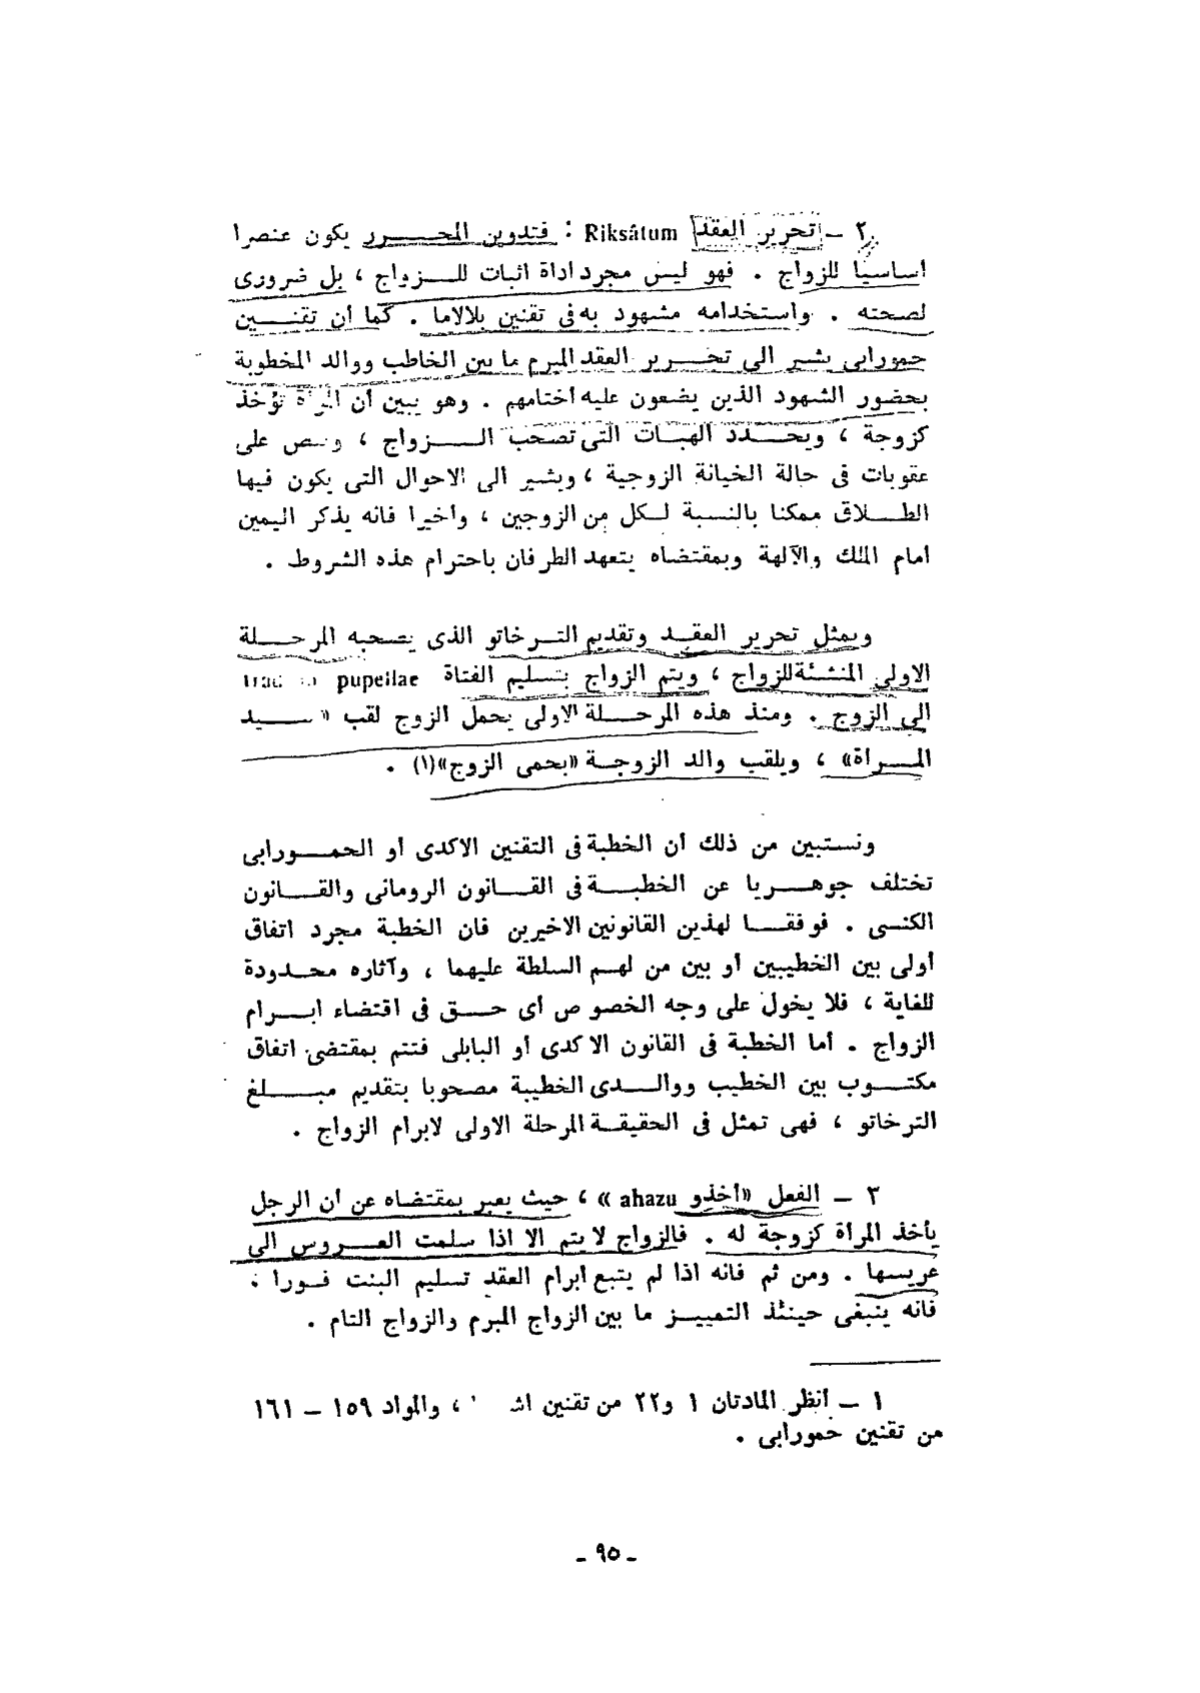 ٢ – تحرير العقد Riksâtum : فتدوين المحرر يكون عنصرا
أساسيا للزواج . فهو ليس مجرد اداة اثبات للزواج ، بل ضرورى
لصحته . واستخدامه مشهود به فى تقنين بلالاما . كما أن تقنين
حمورابى يشير الى تحرير العقد المبرم ما بين الخاطب ووالد المخطوبة
بحضور الشهود الذين يضعون عليه أختامهم . وهو يبين أن المرأة تؤخذ
كزوجة ، ويحدد الهبات التى تصحب الزواج ، وينص على
عقوبات فى حالة الخيانة الزوجية ، ويشير الى الاحوال التى يكون فيها
الطلاق ممكنا بالنسبة لكل من الزوجين ، وأخيرا فانه يذكر اليمين
امام الملك والآلهة وبمقتضاه يتعهد الطرفان باحترام هذه الشروط .
ويمثل تحرير العقد وتقديم الترخاتو الذى يصحبه المرحلة
الاولى المنشئة للزواج ، ويتم الزواج بتسليم الفتاة pupellae
الى الزوج . ومنذ هذه المرحلة الاولى يحمل الزوج لقب « سيد
المرأة» ، ويلقب والد الزوجة «بحمى الزوج»(١) .
ونستبين من ذلك أن الخطبة فى التقنين الاكدى أو الحمورابى
تختلف جوهريا عن الخطبة فى القانون الرومانى والقانون
الكنسى . فوفقا لهذين القانونين الاخيرين فان الخطبة مجرد اتفاق
أولى بين الخطيبين أو بين من لهم السلطة عليهما ، وآثاره محدودة
للغاية ، فلا يخول على وجه الخصوص أى حق فى اقتضاء ابرام
الزواج . أما الخطبة فى القانون الاكدى أو البابلى فتتم بمقتضى اتفاق
مكتوب بين الخطيب ووالدى الخطيبة مصحوبا بتقديم مبلغ
الترخاتو ، فهى تمثل فى الحقيقة المرحلة الاولى لابرام الزواج .
٣ – الفعل «أخذو ahazu » ، حيث يعبر بمقتضاه عن أن الرجل
يأخذ المرأة كزوجة له . فالزواج لا يتم الا اذا سلمت العروس الى
عريسها . ومن ثم فانه اذا لم يتبع ابرام العقد تسليم البنت فورا ،
فانه ينبغى حينئذ التمييز ما بين الزواج المبرم والزواج التام .
١ – أنظر المادتان ١ و٢٢ من تقنين ، والمواد ١٥٩ – ١٦١
من تقنين حمورابى .
– ٩٥ –